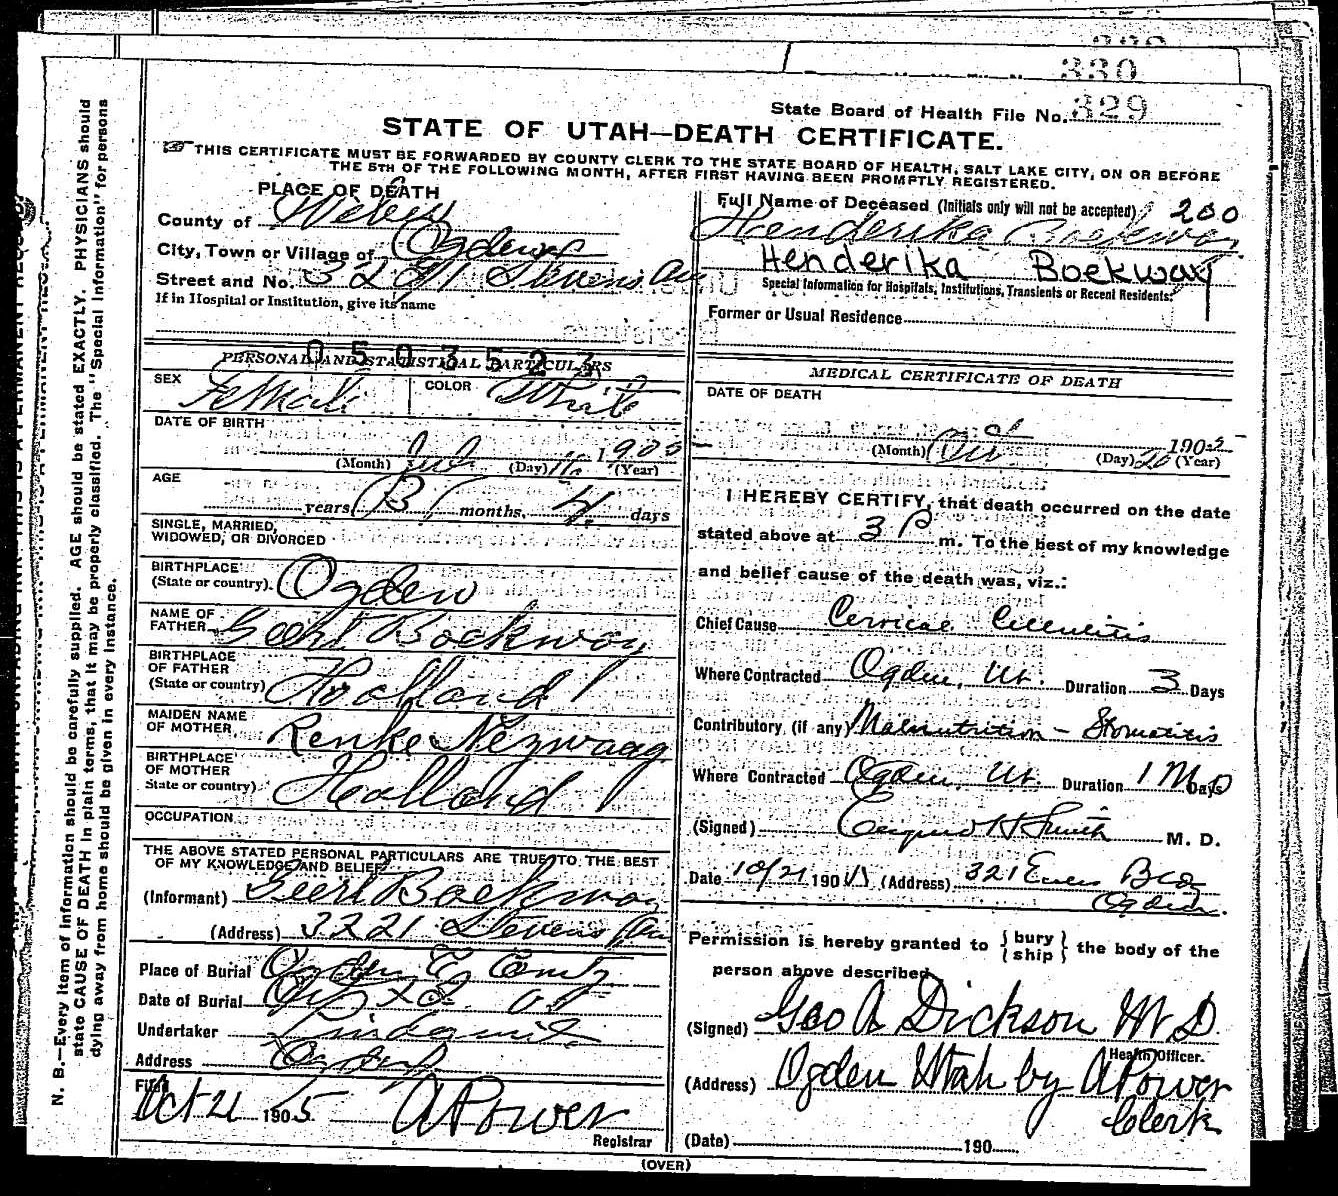 330
State Board of Health File No. 329
STATE OF UTAH—DEATH CERTIFICATE.
THIS CERTIFICATE MUST BE FORWARDED BY COUNTY CLERK TO THE STATE BOARD OF HEALTH, SALT LAKE CITY, ON OR BEFORE
THE 5TH OF THE FOLLOWING MONTH, AFTER FIRST HAVING BEEN PROMPTLY REGISTERED.
PLACE OF DEATH
County of Weber
City, Town or Village of Ogden
Street and No. Stevens Av
If in Hospital or Institution, give its name
Full Name of Deceased (Initials only will not be accepted) 200
Henderika Boekway
Henderika Boekway
Special Information for Hospitals, Institutions, Transients or Recent Residents:
Former or Usual Residence
0503523
PERSONAL AND STATISTICAL PARTICULARS
SEX Female COLOR White
DATE OF BIRTH
(Month) July (Day) 16 1905 (Year)
AGE
years 3 months 4 days
SINGLE, MARRIED,
WIDOWED, OR DIVORCED
BIRTHPLACE
(State or country) Ogden
NAME OF
FATHER Geert Boekway
BIRTHPLACE
OF FATHER
(State or country) Holland
MAIDEN NAME
OF MOTHER Renke Nezwaag
BIRTHPLACE
OF MOTHER
State or country) Holland
OCCUPATION
THE ABOVE STATED PERSONAL PARTICULARS ARE TRUE TO THE BEST
OF MY KNOWLEDGE AND BELIEF
(Informant) Geert Boekway
(Address) 3221 Stevens Av
Place of Burial Ogden Cy Cemty
Date of Burial
Undertaker Lindquist
Address Ogden
Filed
Oct 21 1905 A Power
Registrar
MEDICAL CERTIFICATE OF DEATH
DATE OF DEATH
(Month) Oct (Day) 20 1905 (Year)
I HEREBY CERTIFY, that death occurred on the date
stated above at 3 P m. To the best of my knowledge
and belief cause of the death was, viz.:
Chief Cause Cervical Cellulitis
Where Contracted Ogden, Ut. Duration 3 Days
Contributory (if any) Malnutrition - Stomatitis
Where Contracted Ogden, Ut. Duration 1 Mo Days
(Signed) H Smith M. D.
Date 10/21 190 (Address) 321 Eccles Bldg
Ogden.
Permission is hereby granted to {bury ship} the body of the
person above described
(Signed) Geo A Dickson M D
Health Officer.
(Address) Ogden Utah by A Power
Clerk
(Date) 190
(OVER)
N. B.—Every item of information should be carefully supplied. AGE should be stated EXACTLY. PHYSICIANS should
state CAUSE OF DEATH in plain terms, that it may be properly classified. The "Special Information" for persons
dying away from home should be given in every instance.